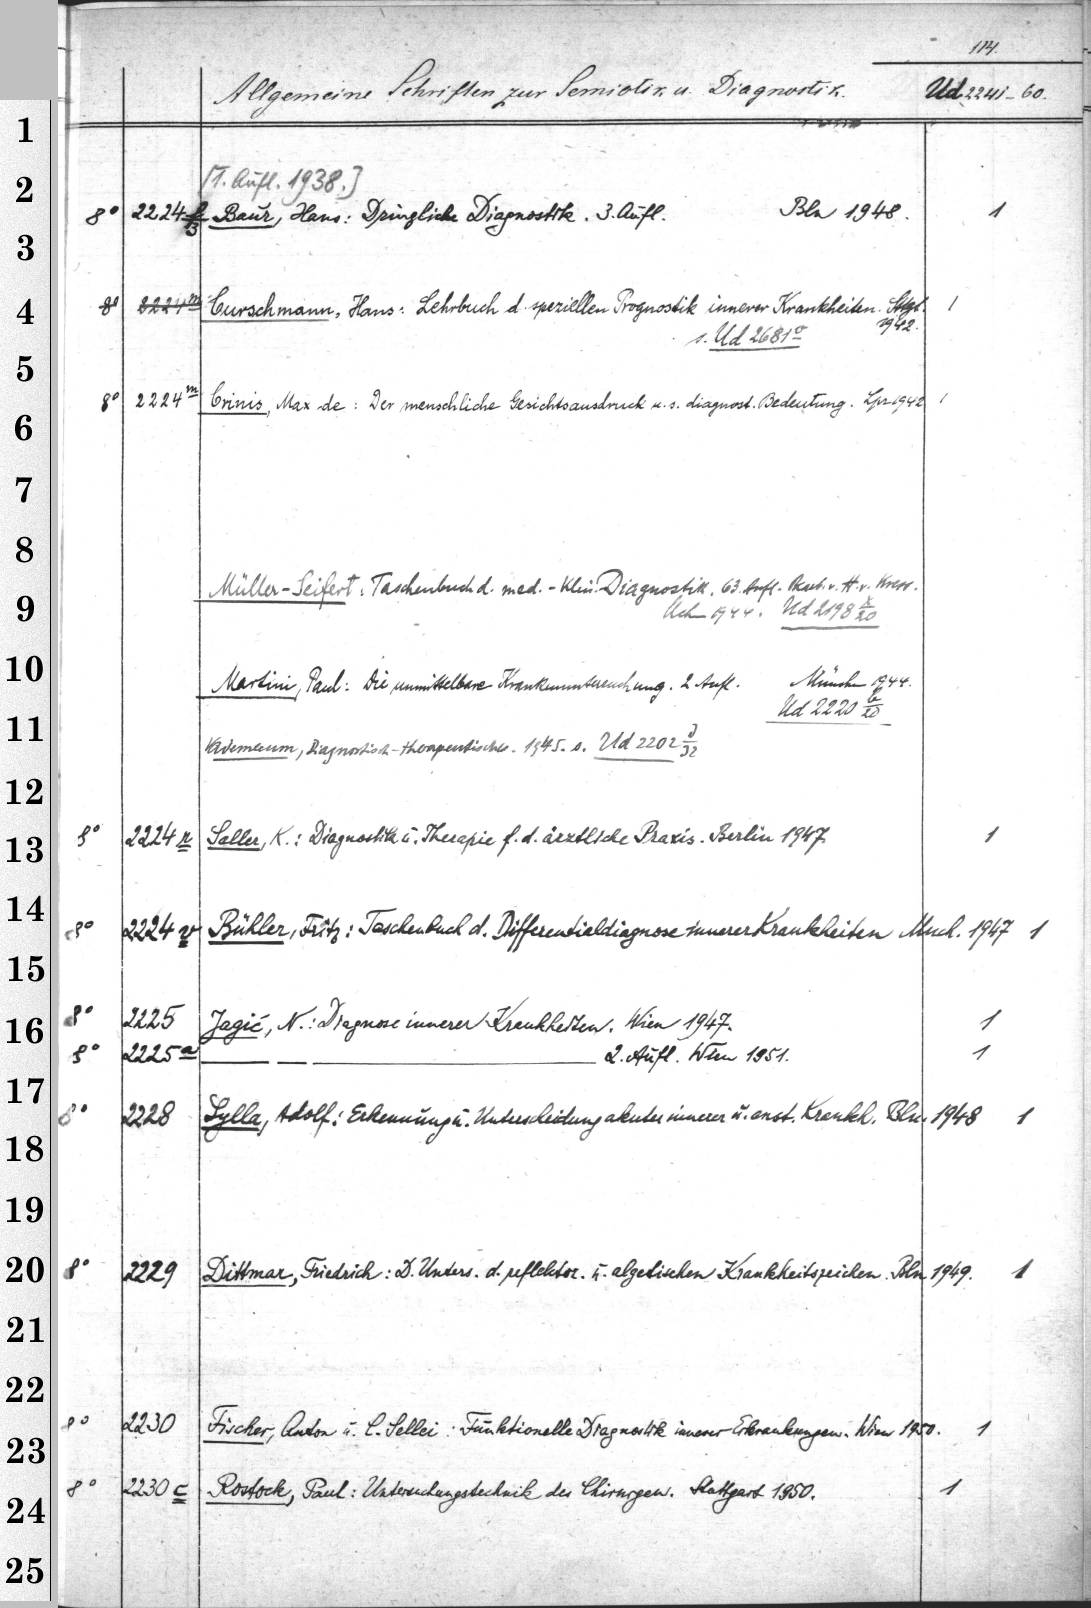 114.
Allgemeine Schriften zur Semiotik u. Diagnostik. Ud 2241-60.
1
2
[1. Aufl. 1938.]
8° 2224 Baur, Hans: Dringliche Diagnostik. 3. Aufl. Bln 1948. 1
3
4
8° 2224m Curschmann, Hans: Lehrbuch d. speziellen Prognostik innerer Krankheiten. Sttgt. 1
1942.
s. Ud 2681a
5
8° 2224m Crinis, Max de: Der menschliche Gesichtsausdruck u. s. diagnost. Bedeutung. Lpz 1942 1
6
7
8
Müller-Seifert: Taschenbuch d. med.-klin. Diagnostik. 63. Aufl. Bearb. v. H. v. Kress.
9
1944. Ud 2198 x/20
10
Martini, Paul: Die unmittelbare Krankenuntersuchung. 2. Aufl. München 1944.
Ud 2220 b/20
11
Vademecum, Diagnostisch-therapeutisches. 1945. s. Ud 2202 d/32
12
8° 2224r Saller, K.: Diagnostik u. Therapie f. d. ärztliche Praxis. Berlin 1947. 1
13
14
8° 2224v Bühler, Fritz: Taschenbuch d. Differentialdiagnose innerer Krankheiten Mnch. 1947 1
15
8° 2225 Jagić, N.: Diagnose innerer Krankheiten. Wien 1947. 1
16
8° 2225a — — — 2. Aufl. Wien 1951. 1
17
8° 2228 Sylla, Adolf: Erkennung u. Unterscheidung akuter innerer u. anst. Krankh. Bln. 1948 1
18
19
20
8° 2229 Dittmar, Friedrich: D. Unters. d. reflektor. u. algetischen Krankheitszeichen. Bln 1949. 1
21
22
8° 2230 Fischer, Anton u. C. Sellei: Funktionelle Diagnostik innerer Erkrankungen. Wien 1950. 1
23
8° 2230c Rostock, Paul: Untersuchungstechnik des Chirurgen. Stuttgart 1950. 1
24
25